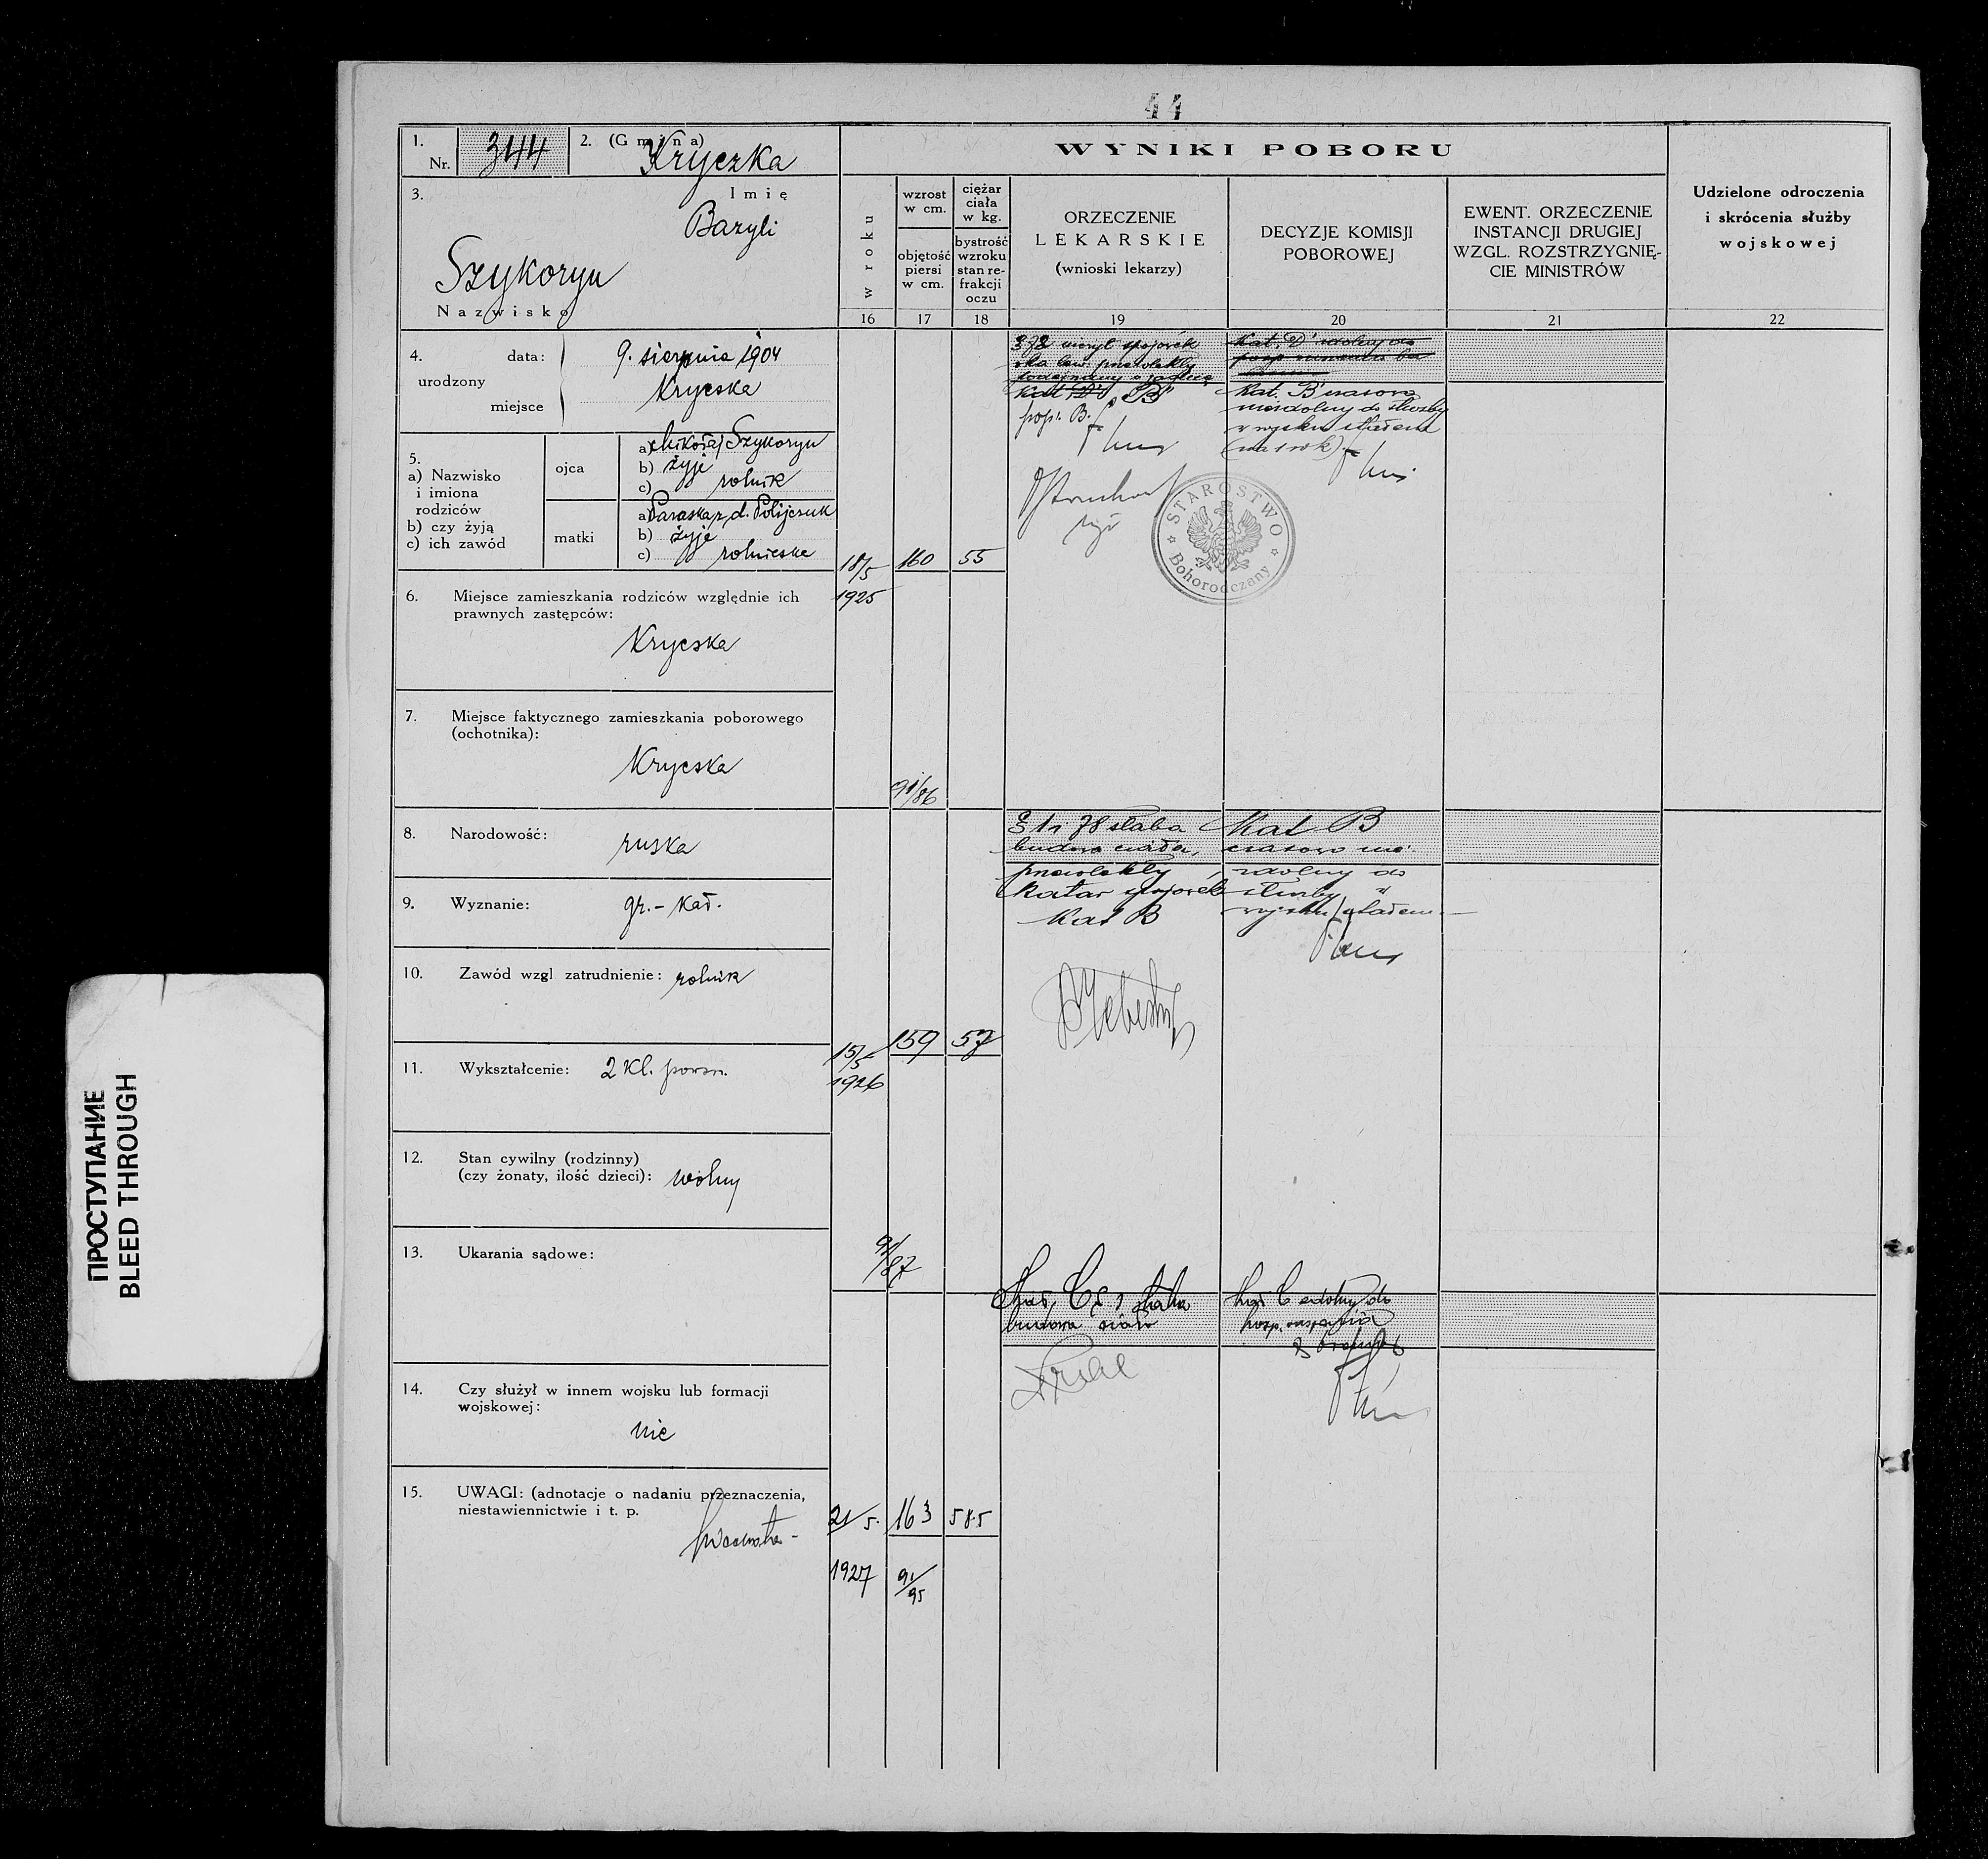 44
1.
Nr. 344
2. (Gmina)
Kryczka
3.
Imię
Bazyli
Szykoryn
Nazwisko
WYNIKI POBORU
w roku
wzrost
w cm.
objętość
piersi
w cm.
ciężar
ciała
w kg.
bystrość
wzroku
stan re-
frakcji
oczu
ORZECZENIE
LEKARSKIE
(wnioski lekarzy)
DECYZJE KOMISJI
POBOROWEJ
EWENT. ORZECZENIE
INSTANCJI DRUGIEJ
WZGL. ROZSTRZYGNIĘ-
CIE MINISTRÓW
Udzielone odroczenia
i skrócenia służby
wojskowej
16 17 18 19 20 21 22
4.
urodzony
data: 9. sierpnia 1904
miejsce Kryczka
5.
a) Nazwisko
i imiona
rodziców
b) czy żyją
c) ich zawód
ojca
a) Mikołaj Szykoryn
b) żyje
c) rolnik
matki
a) Paraska z d. Polijczuk
b) żyje
c) rolniczka
6. Miejsce zamieszkania rodziców względnie ich
prawnych zastępców:
Kryczka
7. Miejsce faktycznego zamieszkania poborowego
(ochotnika):
Kryczka
8. Narodowość: ruska
9. Wyznanie: gr.-kat.
10. Zawód wzgl. zatrudnienie: rolnik
11. Wykształcenie: 2 kl. powsz.
12. Stan cywilny (rodzinny)
(czy żonaty, ilość dzieci): wolny
13. Ukarania sądowe:
14. Czy służył w innem wojsku lub formacji
wojskowej:
nie
15. UWAGI: (adnotacje o nadaniu przeznaczenia,
niestawiennictwie i t. p.
18/5 160 55
1925
91/86
Kat. "D" zdolny do
Kat "D" "B"
pop. B.
Kat. B czasowo
niezdolny do służby
w wojsku stałem
(na 1 rok)
STAROSTWO
Bohorodczany
§ 1 i 78 słaba
budowa ciała,
przewlekły
katar spojówek
Kat B
Kat B
czasowo nie-
zdolny do
służby w
wojsku stałem
15/5 159 57
1926
91/87
Kat. C § 1 słaba
budowa ciała
Kat C zdolny do
posp. ruszenia
z bronią
21/5. 163 58.5
1927 91/95
ПРОСТУПАНИЕ
BLEED THROUGH